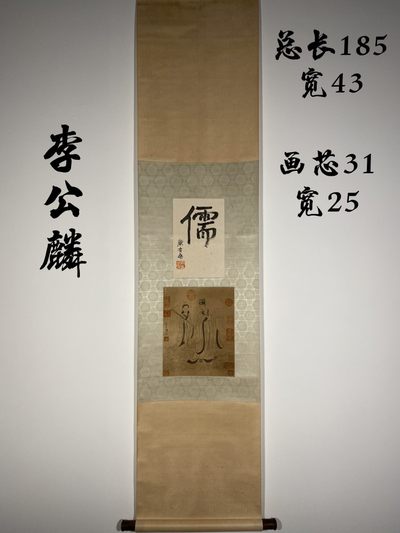 总长185
宽43
李公麟
画芯31
宽25
儒